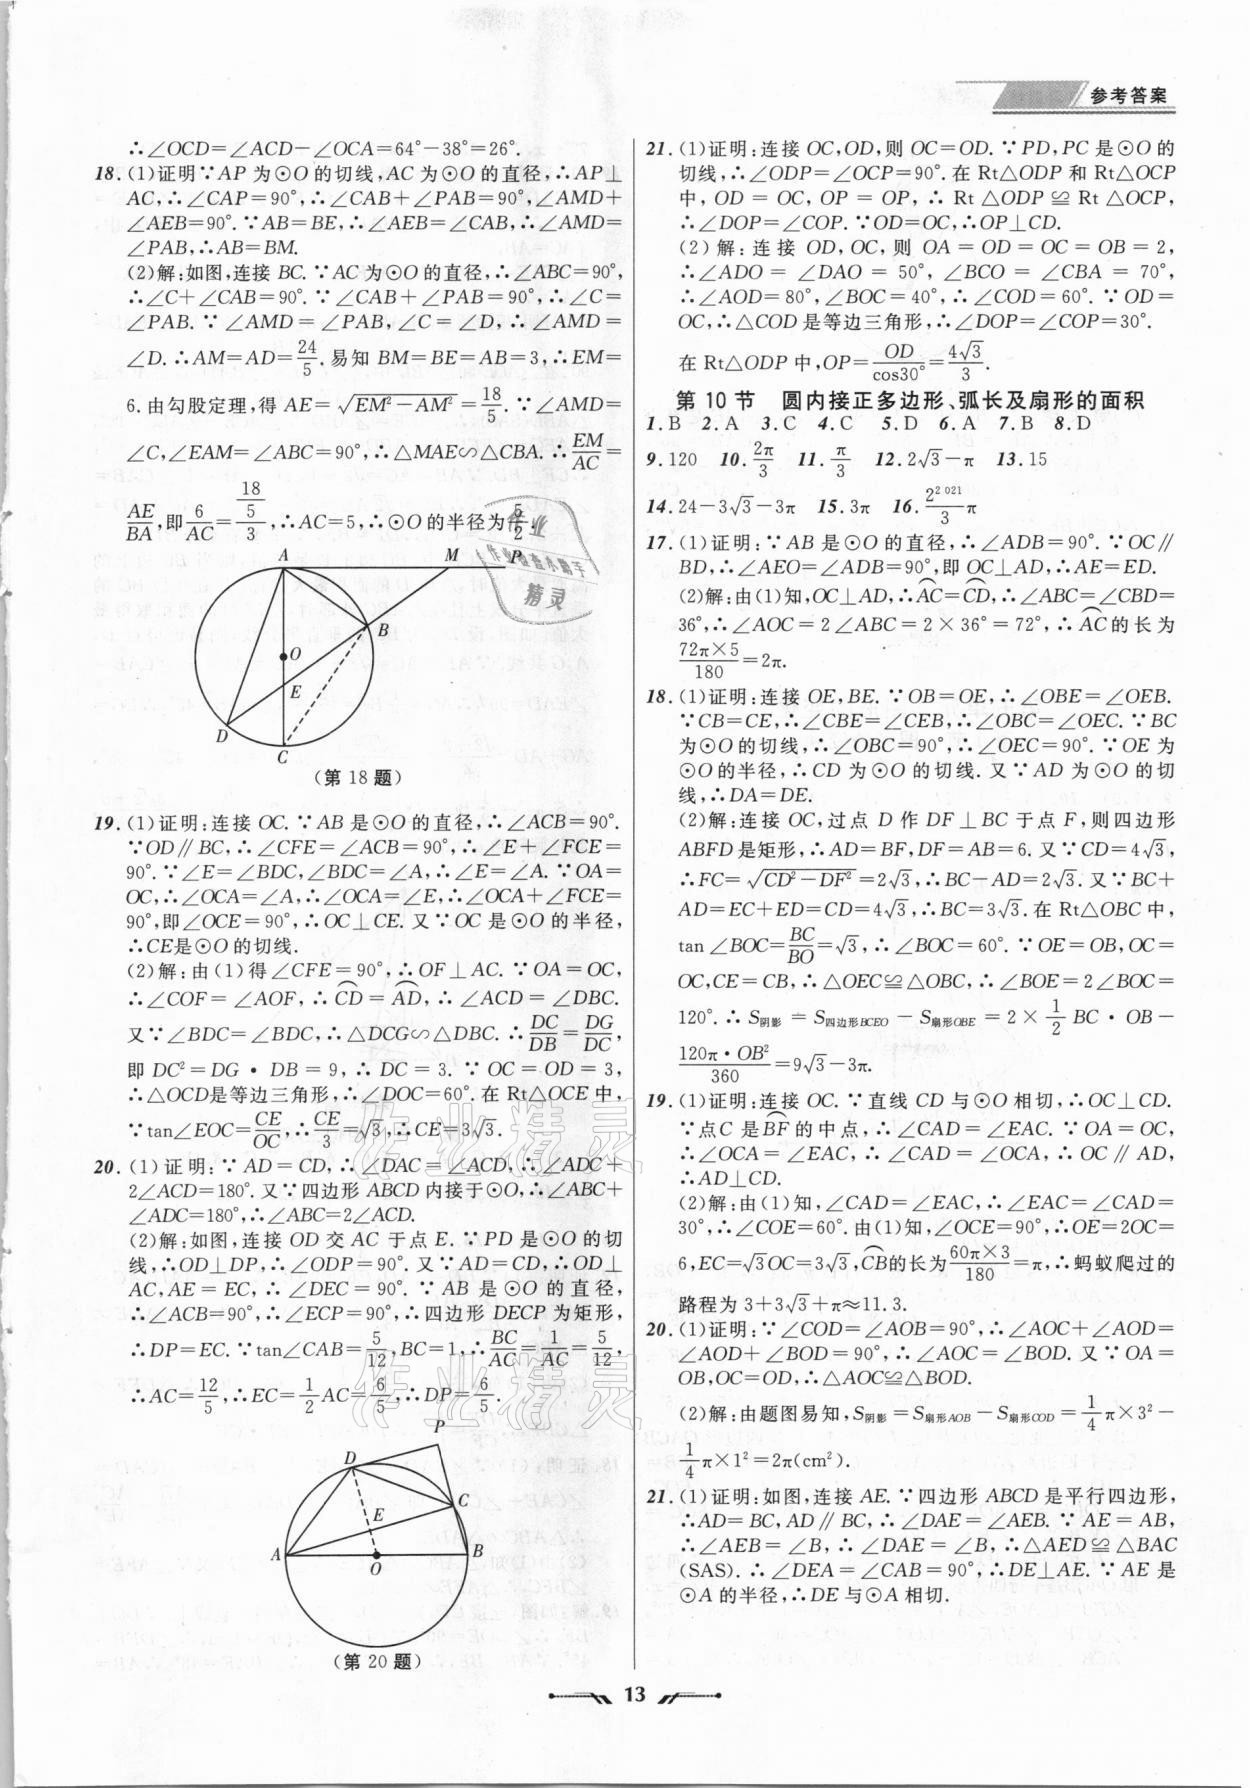 参考答案
∴∠OCD=∠ACD-∠OCA=64°-38°=26°.
18.(1)证明∵AP为⊙O的切线,AC为⊙O的直径,∴AP⊥
AC,∴∠CAP=90°,∴∠CAB+∠PAB=90°,∠AMD+
∠AEB=90°.∵AB=BE,∴∠AEB=∠CAB,∴∠AMD=
∠PAB,∴AB=BM.
(2)解:如图,连接BC.∵AC为⊙O的直径,∴∠ABC=90°,
∴∠C+∠CAB=90°.∵∠CAB+∠PAB=90°,∴∠C=
∠PAB.∵∠AMD=∠PAB,∠C=∠D,∴∠AMD=
∠D.∴AM=AD=24/5.易知BM=BE=AB=3,∴EM=
6.由勾股定理,得AE=√(EM²-AM²)=18/5.∵∠AMD=
∠C,∠EAM=∠ABC=90°,∴△MAE∽△CBA.∴EM/AC=
AE/BA,即6/AC=(18/5)/3,∴AC=5,∴⊙O的半径为5/2.
A M P
B
O
E
D
C
(第18题)
19.(1)证明:连接OC.∵AB是⊙O的直径,∴∠ACB=90°.
∵OD∥BC,∴∠CFE=∠ACB=90°,∴∠E+∠FCE=
90°.∵∠E=∠BDC,∠BDC=∠A,∴∠E=∠A.∵OA=
OC,∴∠OCA=∠A,∴∠OCA=∠E,∴∠OCA+∠FCE=
90°,即∠OCE=90°,∴OC⊥CE.又∵OC是⊙O的半径,
∴CE是⊙O的切线.
(2)解:由(1)得∠CFE=90°,∴OF⊥AC.∵OA=OC,
∴∠COF=∠AOF,∴C͡D=A͡D,∴∠ACD=∠DBC.
又∵∠BDC=∠BDC,∴△DCG∽△DBC.∴DC/DB=DG/DC,
即DC²=DG·DB=9,∴DC=3.∵OC=OD=3,
∴△OCD是等边三角形,∴∠DOC=60°.在Rt△OCE中,
∵tan∠EOC=CE/OC,∴CE/3=√3,∴CE=3√3.
20.(1)证明:∵AD=CD,∴∠DAC=∠ACD,∴∠ADC+
2∠ACD=180°.又∵四边形ABCD内接于⊙O,∴∠ABC+
∠ADC=180°,∴∠ABC=2∠ACD.
(2)解:如图,连接OD交AC于点E.∵PD是⊙O的切
线,∴OD⊥DP,∴∠ODP=90°.又∵AD=CD,∴OD⊥
AC,AE=EC,∴∠DEC=90°.∵AB是⊙O的直径,
∴∠ACB=90°,∴∠ECP=90°,∴四边形DECP为矩形,
∴DP=EC.∵tan∠CAB=5/12,BC=1,∴BC/AC=1/AC=5/12,
∴AC=12/5,∴EC=1/2AC=6/5,∴DP=6/5.
P
D
C
E
A O B
(第20题)
21.(1)证明:连接OC,OD,则OC=OD.∵PD,PC是⊙O的
切线,∴∠ODP=∠OCP=90°.在Rt△ODP和Rt△OCP
中,OD=OC,OP=OP,∴Rt△ODP≌Rt△OCP,
∴∠DOP=∠COP.∵OD=OC,∴OP⊥CD.
(2)解:连接OD,OC,则OA=OD=OC=OB=2,
∴∠ADO=∠DAO=50°,∠BCO=∠CBA=70°,
∴∠AOD=80°,∠BOC=40°,∴∠COD=60°.∵OD=
OC,∴△COD是等边三角形,∴∠DOP=∠COP=30°.
在Rt△ODP中,OP=OD/cos30°=4√3/3.
第10节 圆内接正多边形、弧长及扇形的面积
1.B 2.A 3.C 4.C 5.D 6.A 7.B 8.D
9.120 10.2π/3 11.π/3 12.2√3-π 13.15
14.24-3√3-3π 15.3π 16.2^2 021/3 π
17.(1)证明:∵AB是⊙O的直径,∴∠ADB=90°.∵OC∥
BD,∴∠AEO=∠ADB=90°,即OC⊥AD,∴AE=ED.
(2)解:由(1)知,OC⊥AD,∴A͡C=C͡D,∴∠ABC=∠CBD=
36°,∴∠AOC=2∠ABC=2×36°=72°,∴A͡C的长为
72π×5/180=2π.
18.(1)证明:连接OE,BE.∵OB=OE,∴∠OBE=∠OEB.
∵CB=CE,∴∠CBE=∠CEB,∴∠OBC=∠OEC.∵BC
为⊙O的切线,∴∠OBC=90°,∴∠OEC=90°.∵OE为
⊙O的半径,∴CD为⊙O的切线.又∵AD为⊙O的切
线,∴DA=DE.
(2)解:连接OC,过点D作DF⊥BC于点F,则四边形
ABFD是矩形,∴AD=BF,DF=AB=6.又∵CD=4√3,
∴FC=√(CD²-DF²)=2√3,∴BC-AD=2√3.又∵BC+
AD=EC+ED=CD=4√3,∴BC=3√3.在Rt△OBC中,
tan∠BOC=BC/BO=√3,∴∠BOC=60°.∵OE=OB,OC=
OC,CE=CB,∴△OEC≌△OBC,∴∠BOE=2∠BOC=
120°.∴S阴影=S四边形BCEO-S扇形OBE=2×1/2BC·OB-
120π·OB²/360=9√3-3π.
19.(1)证明:连接OC.∵直线CD与⊙O相切,∴OC⊥CD.
∵点C是B͡F的中点,∴∠CAD=∠EAC.∵OA=OC,
∴∠OCA=∠EAC,∴∠CAD=∠OCA,∴OC∥AD,
∴AD⊥CD.
(2)解:由(1)知,∠CAD=∠EAC,∴∠EAC=∠CAD=
30°,∴∠COE=60°.由(1)知,∠OCE=90°,∴OE=2OC=
6,EC=√3OC=3√3,C͡B的长为60π×3/180=π,∴蚂蚁爬过的
路程为3+3√3+π≈11.3.
20.(1)证明:∵∠COD=∠AOB=90°,∴∠AOC+∠AOD=
∠AOD+∠BOD=90°,∴∠AOC=∠BOD.又∵OA=
OB,OC=OD,∴△AOC≌△BOD.
(2)解:由题图易知,S阴影=S扇形AOB-S扇形COD=1/4π×3²-
1/4π×1²=2π(cm²).
21.(1)证明:如图,连接AE.∵四边形ABCD是平行四边形,
∴AD=BC,AD∥BC,∴∠DAE=∠AEB.∵AE=AB,
∴∠AEB=∠B,∴∠DAE=∠B,∴△AED≌△BAC
(SAS).∴∠DEA=∠CAB=90°,∴DE⊥AE.∵AE是
⊙A的半径,∴DE与⊙A相切.
作业
作业检查小助手
精灵
作业精灵
作业精灵
13